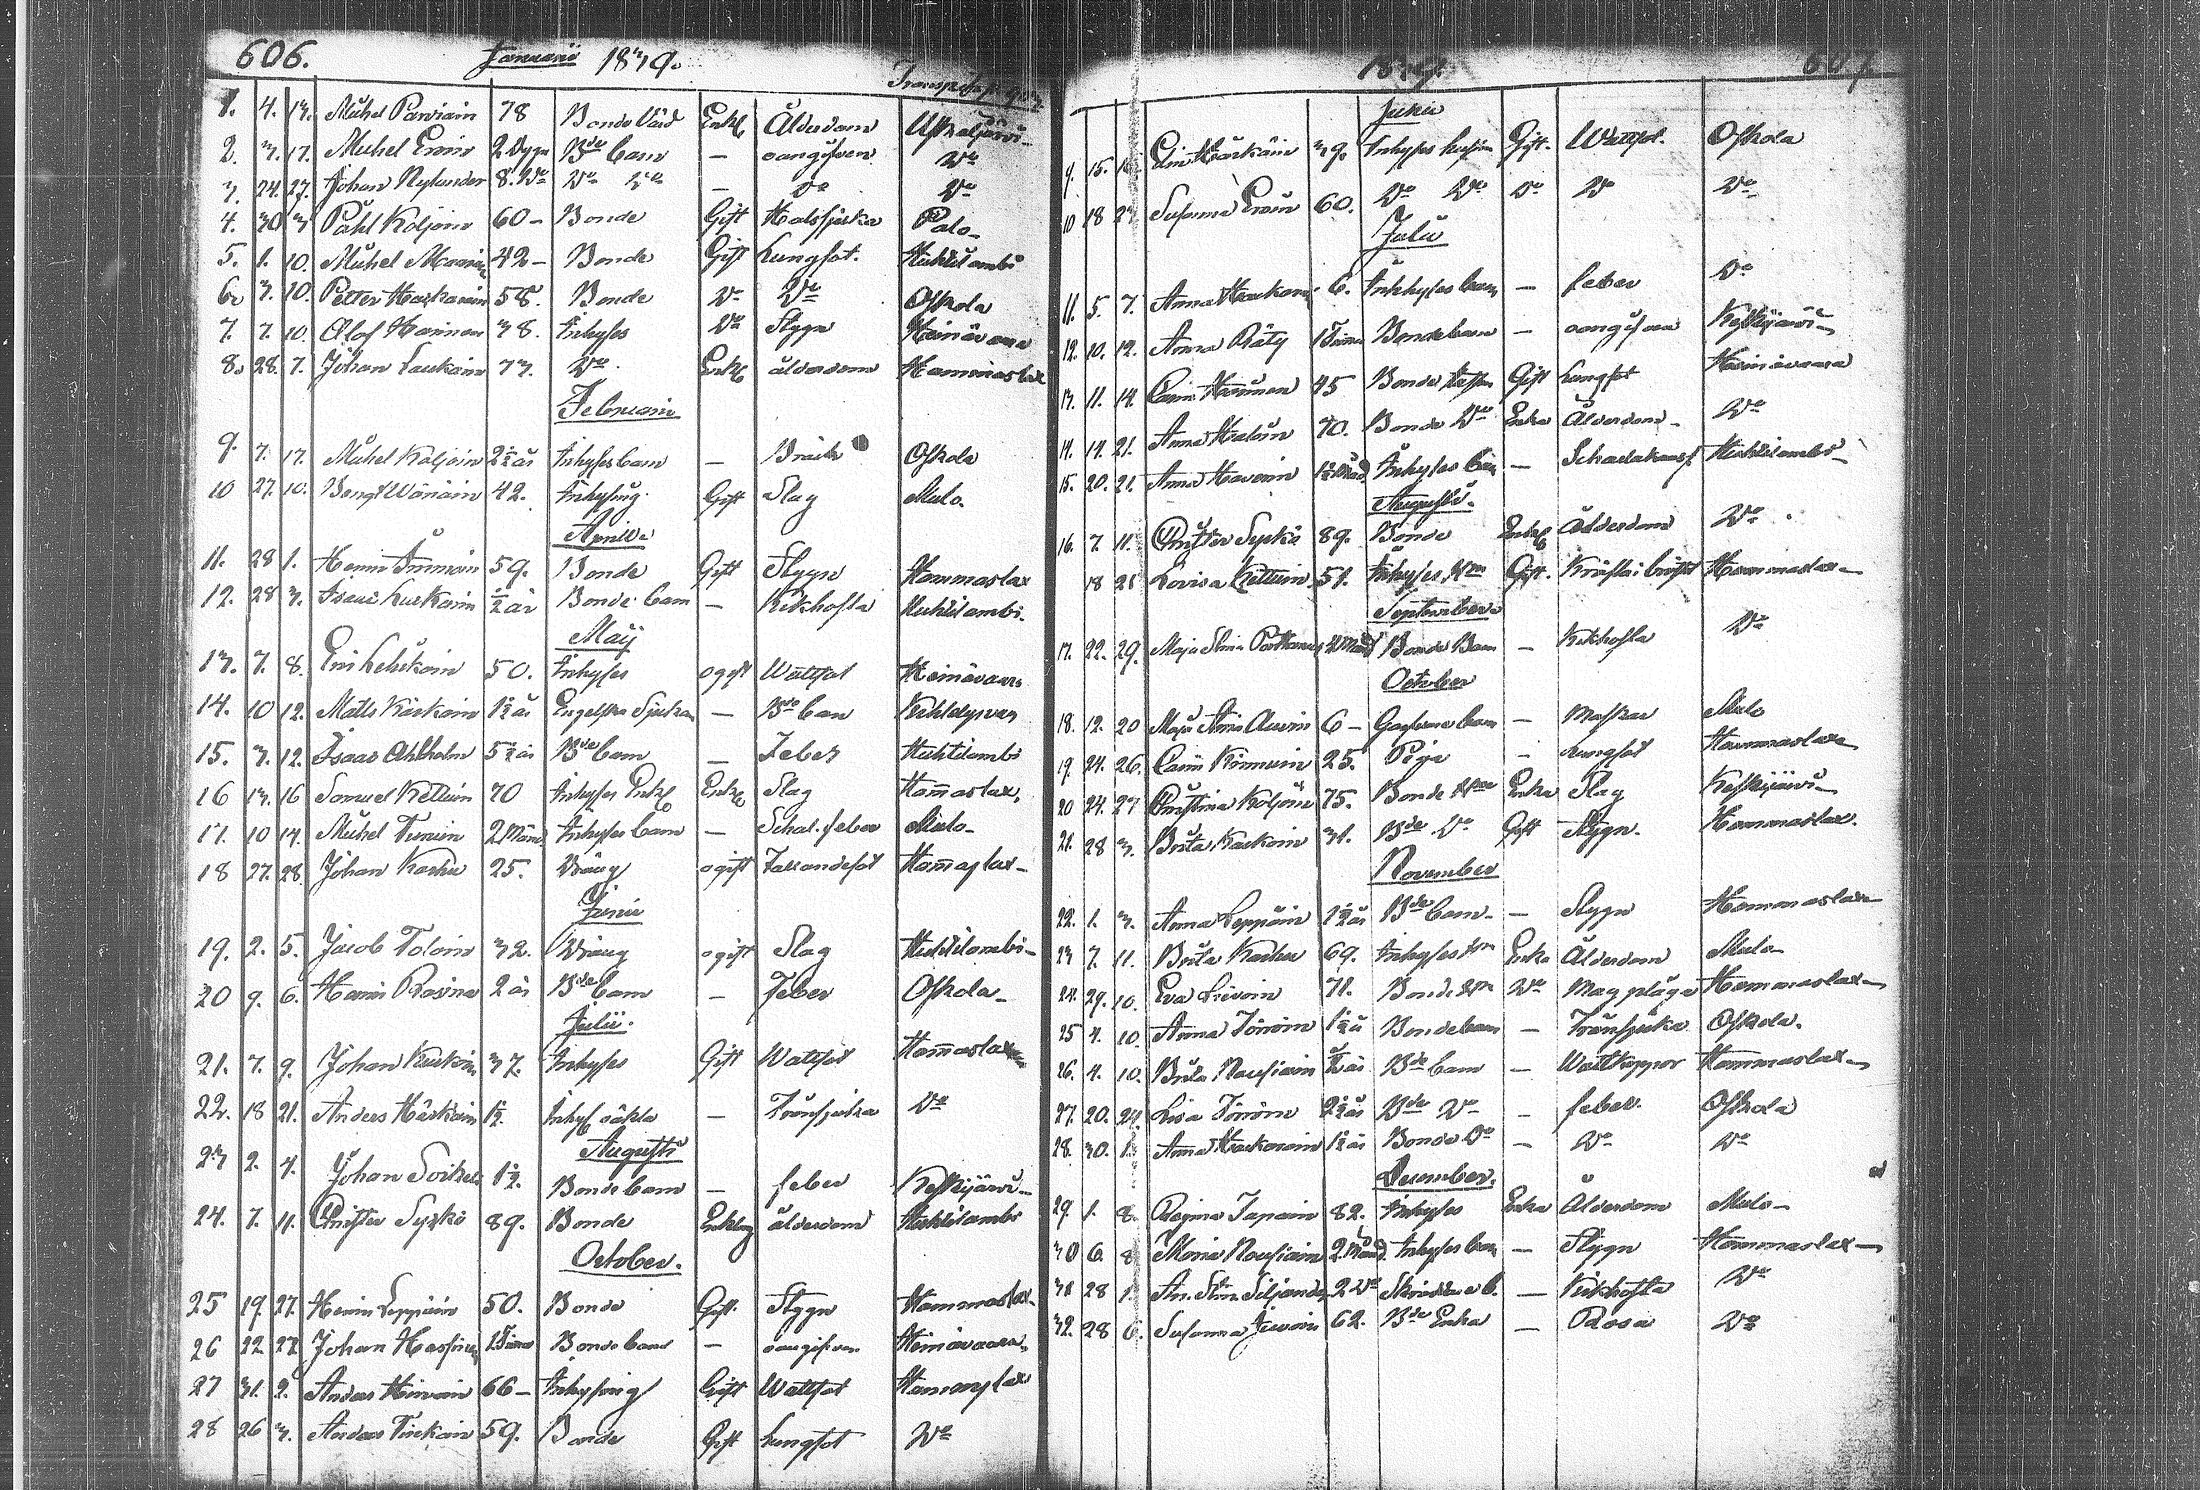 606. Januarii 1839.
1. 4. 13. Michel Parviain 78 Bonde Enkl Ålderdom
2. 3. 17. Michel Eroin 2 Dygn Bde barn — oangifven Do
3. 24. 27. Johan Nylander 8. Do Do Do — Do Do
4. 30 3 Påhl Koljoin 60 — Bonde Gift Halssjuka Palo —
5. 1. 10. Michel 42 — Bonde Gift Lungsot. Huhtilambi
6. 3. 10. Petter Harkonin 58. Bonde Do Do Oskola
7. 7. 10. Olof Havinen 38. Inhyses Do Stygn Heinävaara
8. 28. 7. Johan Laukain 73. Do Enkl ålderdom Hammaslax
Februarii
9. 7. 17. Michel Koljoin 2½ år Inhyses barn — Bråck Oskola
10 27. 10. Bengt Wänäin 42. Inhysing Gift Slag Mulo.
Aprill
11. 28 1. Henric Immoin 59. Bonde Gift Stygn Hammaslax
12. 28 3. Isaac Kuekain ½ år Bonde barn — Kikhosta Huhtilambi.
Maij
13. 7. 8. Eric 50. Inhyses ogift Wattsot Heinävaara
14. 10 12. Matts Käskain 1½ år Engelska Sjukan — Bde barn Kihtelysvaa
15. 3. 12. Isaac Ahlholm 5½ år Bde barn — Feber Huhtilambi
16 13. 16 Samuel Kettuin 70 Inhyses Enkl Enkl Slag Hamaslax.
17. 10 14. Michel Turuin 2 Mån Inhyses barn — Schal. feber Mulo —
18 27. 28. Johan Karhu 25. Dräng ogift Fallandesot Hamaslax —
Junii
19. 2. 5. Jacob Toloin 32. Dräng ogift Slag Huhtilambi —
20 9. 6. Henric Rosina 2 år Bde barn — Feber Oskola —
Julii.
21. 7. 9. Johan Kuekoin 37. Inhyses Gift Wattsot Hamaslax
22. 18 21. Anders Härkoin 1½. Inhys oäkta — Trånsjuka Do
Augusti
23 2. 4. Johan Soikeli 1½. Bonde barn — feber Keskijärvi —
24. 7. 11. Christer Syrkö 89. Bonde Enkling ålderdom Huhtilambi
October.
25 19. 27. Henric Leppäin 50. Bonde Gift. Stygn Hammaslax
26 22 27. Johan Hassinen 1 Timme Bonde barn — oangifven Heinävaara
27 31. 2. Anders Hirvoin 66 — Inhysing Gift Wattsot Hamaslax
28 26 3. Anders Turkain 59. Bonde Gift Lungsot Do
1839. 607.
Junii
9. 15. 16. Elin Härkäin 39. Inhyses hustru Gift. Wattsot. Oskola
10 18 23. Susanna Eroin 60. Do Do Do Do Do
Julii
11. 5. 7. Anna Harkonin 6. Inhyses barn — feber Do
12. 10. 12. Anna Räty 1 Timme Bonde barn — oangifven Keskijärvi —
13. 11. 14. Carin Havinen 45 Bonde hustru Gift Lungsot Heinävaara
14. 14. 21. Anna 70. Bonde Do Enka Ålderdom — Do
15. 20. 21. Anna Havoin 1½ Månad Inhyses barn — Huhtilambi —
Augusti.
16. 7. 11. Christer Syrkö 89. Bonde Enkl Ålderdom Do
18 21 Lovisa Kettuin 51. Inhyses Gift. Kräfta i bröst Hammaslax —
September
17. 22. 29. Maja Stina Bonde Barn — Kikhosta Do
October
18. 12. 20 Maja Stina 6 — barn — Maskar Mulo
19. 24. 26. Carin Kinnuin 25. Piga — Lungsot Hammaslax
20 24. 27 Christina Koljoin 75. Bonde Enka Slag Keskijärvi —
21. 28 3. Brita Käskoin 31. Bde Do Gift Stygn. Hammaslax.
November
22. 1. 3. Anna Leppäin 1½ år Bde barn — — Stygn Hammaslax —
23 7. 11. Brita Karhu 69. Inhyses Enka Ålderdom Mulo —
24. 29. 10. Eva 71. Bonde Do Magplåga Hammaslax —
25 4. 10. Anna Toroin 1½ år Bonde barn — Trånsjuka Oskola.
26. 4. 10. Brita Nousiain ½ år Bde barn — Wattkoppor Hammaslax —
27. 20. 24. Lisa Toroin 2½ år Bde Do — feber. Oskola
28. 30. 1. Anna Harkonin 1½ år Bonde Do — Do Do
December.
29. 1. 8. Regina Tapain 82. Inhyses Enka Ålderdom Mulo —
30 6. 8 Maria Nousiain 2 Månad Inhyses barn — Stygn Hammaslax —
31 28 1. An. Stin Siljander 2 Do — Kikhosta Do
32. 28 6. Susanna 62. Bde Enka — Rosa Do